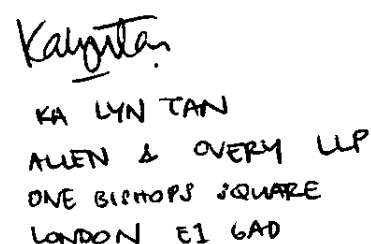 KA LYN TAN
ALLEN & OVERY LLP
ONE BISHOPS SQUARE
LONDON E1 6AD